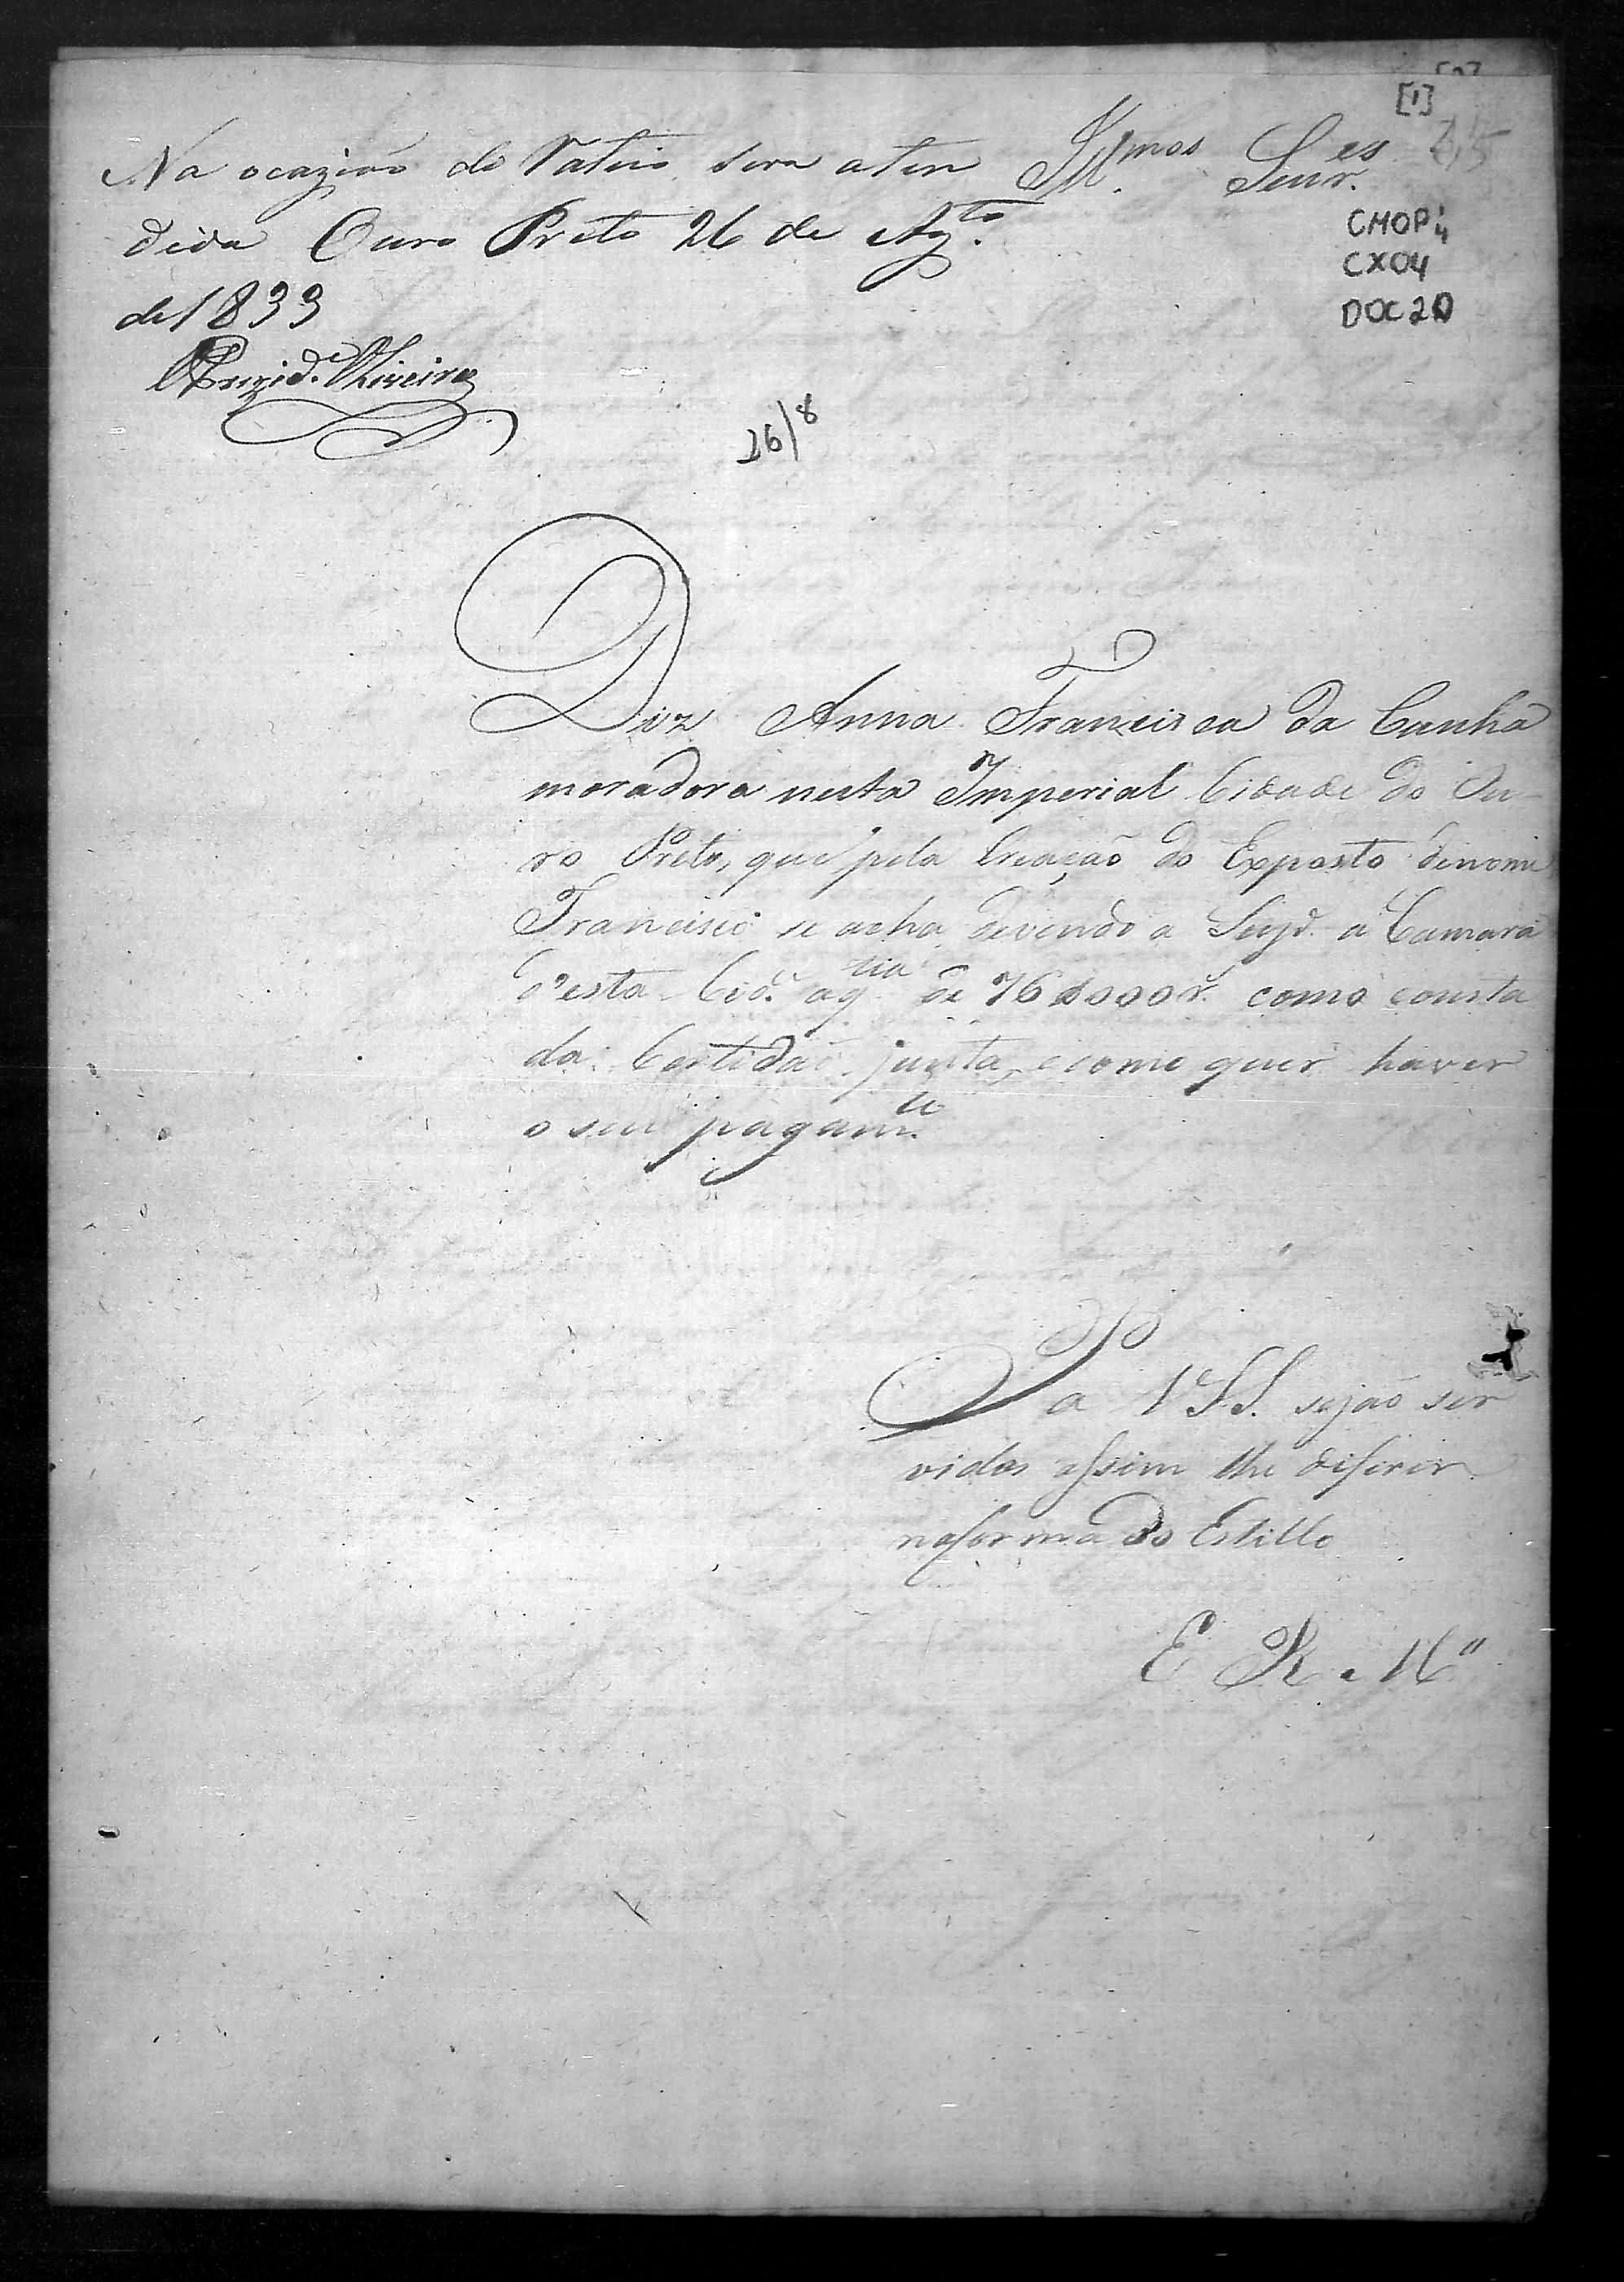 [1]
Na ocazião do Rateio sera aten
dida Ouro Preto 26 de Agto.
de 1833
Prezide. Oliveira
Illmos. Senres.
CMOP 4
CX04
DOC 20
26/8
Diz Anna Francisca da Cunha
moradora nesta Imperial Cidade do Ou-
ro Preto, que pela Creação do Exposto denome
Francisco se acha devendo a Supd. a Camara
d'esta Cide. aqtia de 76$000 r. como consta
da Certidão junta, e como quer haver
o seu pagamto.
Pa VSS. sejão ser
vidos assim lhe diferir
naforma do Estillo
E R Mce